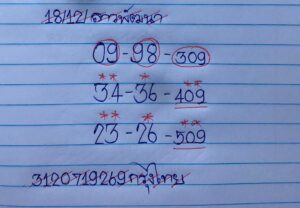 18/12/ลาวพัฒนา
09-98-309
34-36-409
23-26-509
3120719269กรุงไทย